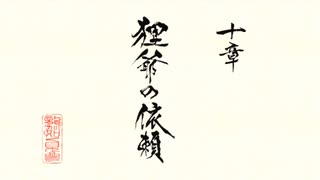 十章
狸爺の依頼